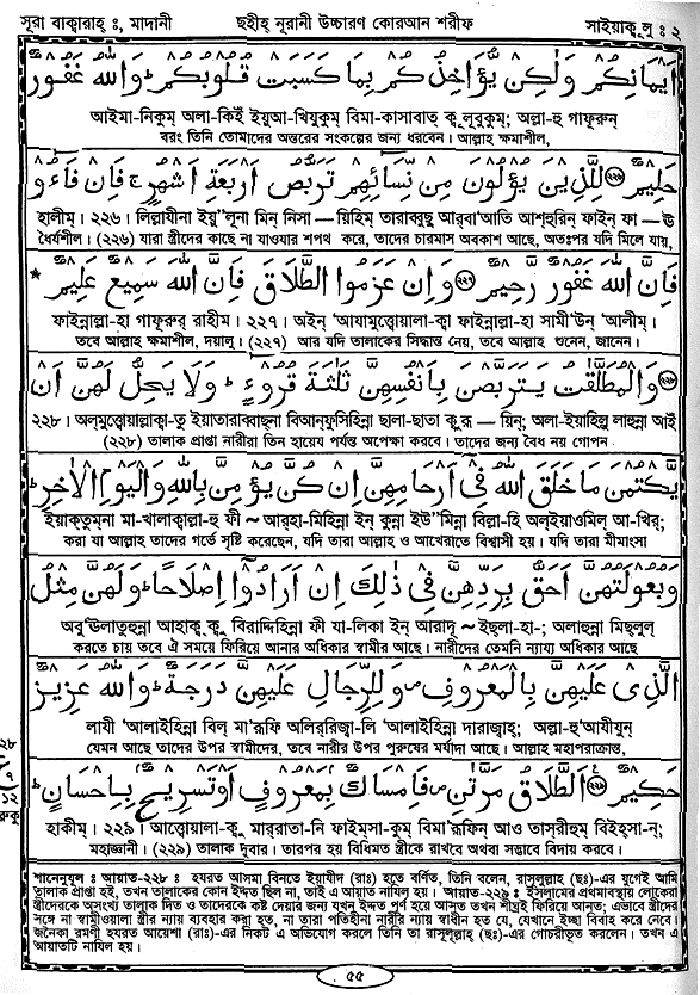 সূরা বাক্বারাহ্ ঃ, মাদানী ছহীহ্ নূরানী উচ্চারণ কোরআন শরীফ সাইয়াক্বূলু ঃ ২
اَيْمَانِكُمْ وَلٰكِنْ يُّؤَاخِذُكُمْ بِمَا كَسَبَتْ قُلُوْبُكُمْ ؕ وَاللّٰهُ غَفُوْرٌ
আইমা-নিকুম্ অলা-কিইঁ ইয়ুআ-খিযুকুম্ বিমা-কাসাবাত্ ক্বুলূবুকুম্; অল্লা-হু গাফূরুন্
বরং তিনি তোমাদের অন্তরের সংকল্পের জন্য ধরবেন। আল্লাহ্ ক্ষমাশীল,
حَلِيْمٌ ﴿۲۲۵﴾ لِلَّذِيْنَ يُؤْلُوْنَ مِنْ نِّسَآئِهِمْ تَرَبُّصُ اَرْبَعَةِ اَشْهُرٍ ۚ فَاِنْ فَآءُوْ
হালীম্। ২২৬। লিল্লাযীনা ইয়ু"লূনা মিন্ নিসা — য়িহিম্ তারাব্বুছু আর্‌বা'আতি আশ্‌হুরিন্ ফাইন্ ফা — ঊ
ধৈর্যশীল। (২২৬) যারা স্ত্রীদের কাছে না যাওয়ার শপথ করে, তাদের চারমাস অবকাশ আছে, অতঃপর যদি মিলে যায়,
فَاِنَّ اللّٰهَ غَفُوْرٌ رَّحِيْمٌ ﴿۲۲۶﴾ وَاِنْ عَزَمُوا الطَّلَاقَ فَاِنَّ اللّٰهَ سَمِيْعٌ عَلِيْمٌ ★
ফাইন্নাল্লা-হা গাফূরুর্ রাহীম। ২২৭। অইন্ 'আযামুত্ত্বোয়ালা-ক্বা ফাইন্নাল্লা-হা সামী'উন্ 'আলীম্।
তবে আল্লাহ্ ক্ষমাশীল, দয়ালু। (২২৭) আর যদি তালাকের সিদ্ধান্ত নেয়, তবে আল্লাহ্ শুনেন, জানেন।
﴿۲۲۷﴾ وَالْمُطَلَّقٰتُ يَتَرَبَّصْنَ بِاَنْفُسِهِنَّ ثَلٰثَةَ قُرُوْٓءٍ ؕ وَلَا يَحِلُّ لَهُنَّ اَنْ
২২৮। অল্‌মুত্ত্বোয়াল্লাক্বা-তু ইয়াতারাব্বাছ্‌না বিআন্‌ফুসিহিন্না ছালা-ছাতা ক্বুরূ — য়িন্; অলা-ইয়াহিল্লু লাহুন্না আইঁ
(২২৮) তালাক প্রাপ্তা নারীরা তিন হায়েয পর্যন্ত অপেক্ষা করবে। তাদের জন্য বৈধ নয় গোপন
يَّكْتُمْنَ مَا خَلَقَ اللّٰهُ فِيْٓ اَرْحَامِهِنَّ اِنْ كُنَّ يُؤْمِنَّ بِاللّٰهِ وَالْيَوْمِ الْاٰخِرِ ؕ
ইয়াক্‌তুম্‌না মা-খালাক্বাল্লা-হু ফী ~ আর্‌হা-মিহিন্না ইন্ কুন্না ইউ"মিন্না বিল্লা-হি অল্‌ইয়াওমিল্ আ-খির্;
করা যা আল্লাহ্ তাদের গর্ভে সৃষ্টি করেছেন, যদি তারা আল্লাহ্ ও আখেরাতে বিশ্বাসী হয়। যদি তারা মীমাংসা
وَبُعُوْلَتُهُنَّ اَحَقُّ بِرَدِّهِنَّ فِيْ ذٰلِكَ اِنْ اَرَادُوْٓا اِصْلَاحًا ؕ وَلَهُنَّ مِثْلُ
অবু'ঊলাতুহুন্না আহাক্ব্‌ক্বু বিরাদ্দিহিন্না ফী যা-লিকা ইন্ আরাদূ ~ ইছ্‌লা-হা-; অলাহুন্না মিছ্‌লুল্
করতে চায় তবে ঐ সময়ে ফিরিয়ে আনার অধিকার স্বামীর আছে। নারীদের তেমনি ন্যায্য অধিকার আছে
الَّذِيْ عَلَيْهِنَّ بِالْمَعْرُوْفِ ۪ وَلِلرِّجَالِ عَلَيْهِنَّ دَرَجَةٌ ؕ وَاللّٰهُ عَزِيْزٌ
লাযী 'আলাইহিন্না বিল্ মা'রূফি অলির্‌রিজ্বা-লি 'আলাইহিন্না দারাজ্বাহ্; অল্লা-হু'আযীযুন্
যেমন আছে তাদের উপর স্বামীদের, তবে নারীর উপর পুরুষের মর্যাদা আছে। আল্লাহ্ মহাপরাক্রান্ত,
حَكِيْمٌ ﴿۲۲۸﴾ اَلطَّلَاقُ مَرَّتٰنِ ۪ فَاِمْسَاكٌۢ بِمَعْرُوْفٍ اَوْ تَسْرِيْحٌۢ بِاِحْسَانٍ ؕ
হাকীম্। ২২৯। আত্ত্বোয়ালা-ক্বু মার্‌রাতা-নি ফাইম্‌সা-কুম্ বিমা'রূফিন্ আও তাস্‌রীহুম্ বিইহ্‌সা-ন্;
মহাজ্ঞানী। (২২৯) তালাক দুবার। তারপর হয় বিধিমত স্ত্রীকে রাখবে অথবা সদ্ভাবে বিদায় করবে।
২৮
১২
রুকু
শানেনুযুল ঃ আয়াত-২২৮ ঃ হযরত আসমা বিনতে ইয়াযীদ (রাঃ) হতে বর্ণিত, তিনি বলেন, রাসূলুল্লাহ্ (ছঃ)-এর যুগেই আমি
তালাক প্রাপ্তা হই, তখন তালাকের কোন ইদ্দত ছিল না, তাই এ আয়াত নাযিল হয়। আয়াত-২২৯ ঃ ইসলামের প্রথমাবস্থায় লোকেরা
স্ত্রীদেরকে অসংখ্য তালাক দিত ও তাদেরকে কষ্ট দেয়ার জন্য যখন ইদ্দত পূর্ণ হয়ে আসত তখন শীঘ্রই ফিরিয়ে আনত; এভাবে স্ত্রীদের
সঙ্গে না স্বামীওয়ালা স্ত্রীর ন্যায় ব্যবহার করা হত, না তারা পতিহীনা নারীর ন্যায় স্বাধীন হত যে, যেখানে ইচ্ছা বিবাহ করে নেবে।
জনৈকা রমণী হযরত আয়েশা (রাঃ)-এর নিকট এ অভিযোগ করলে তিনি তা রাসূলুল্লাহ্ (ছঃ)-এর গোচরীভূত করলেন। তখন এ
আয়াতটি নাযিল হয়।
৫৫